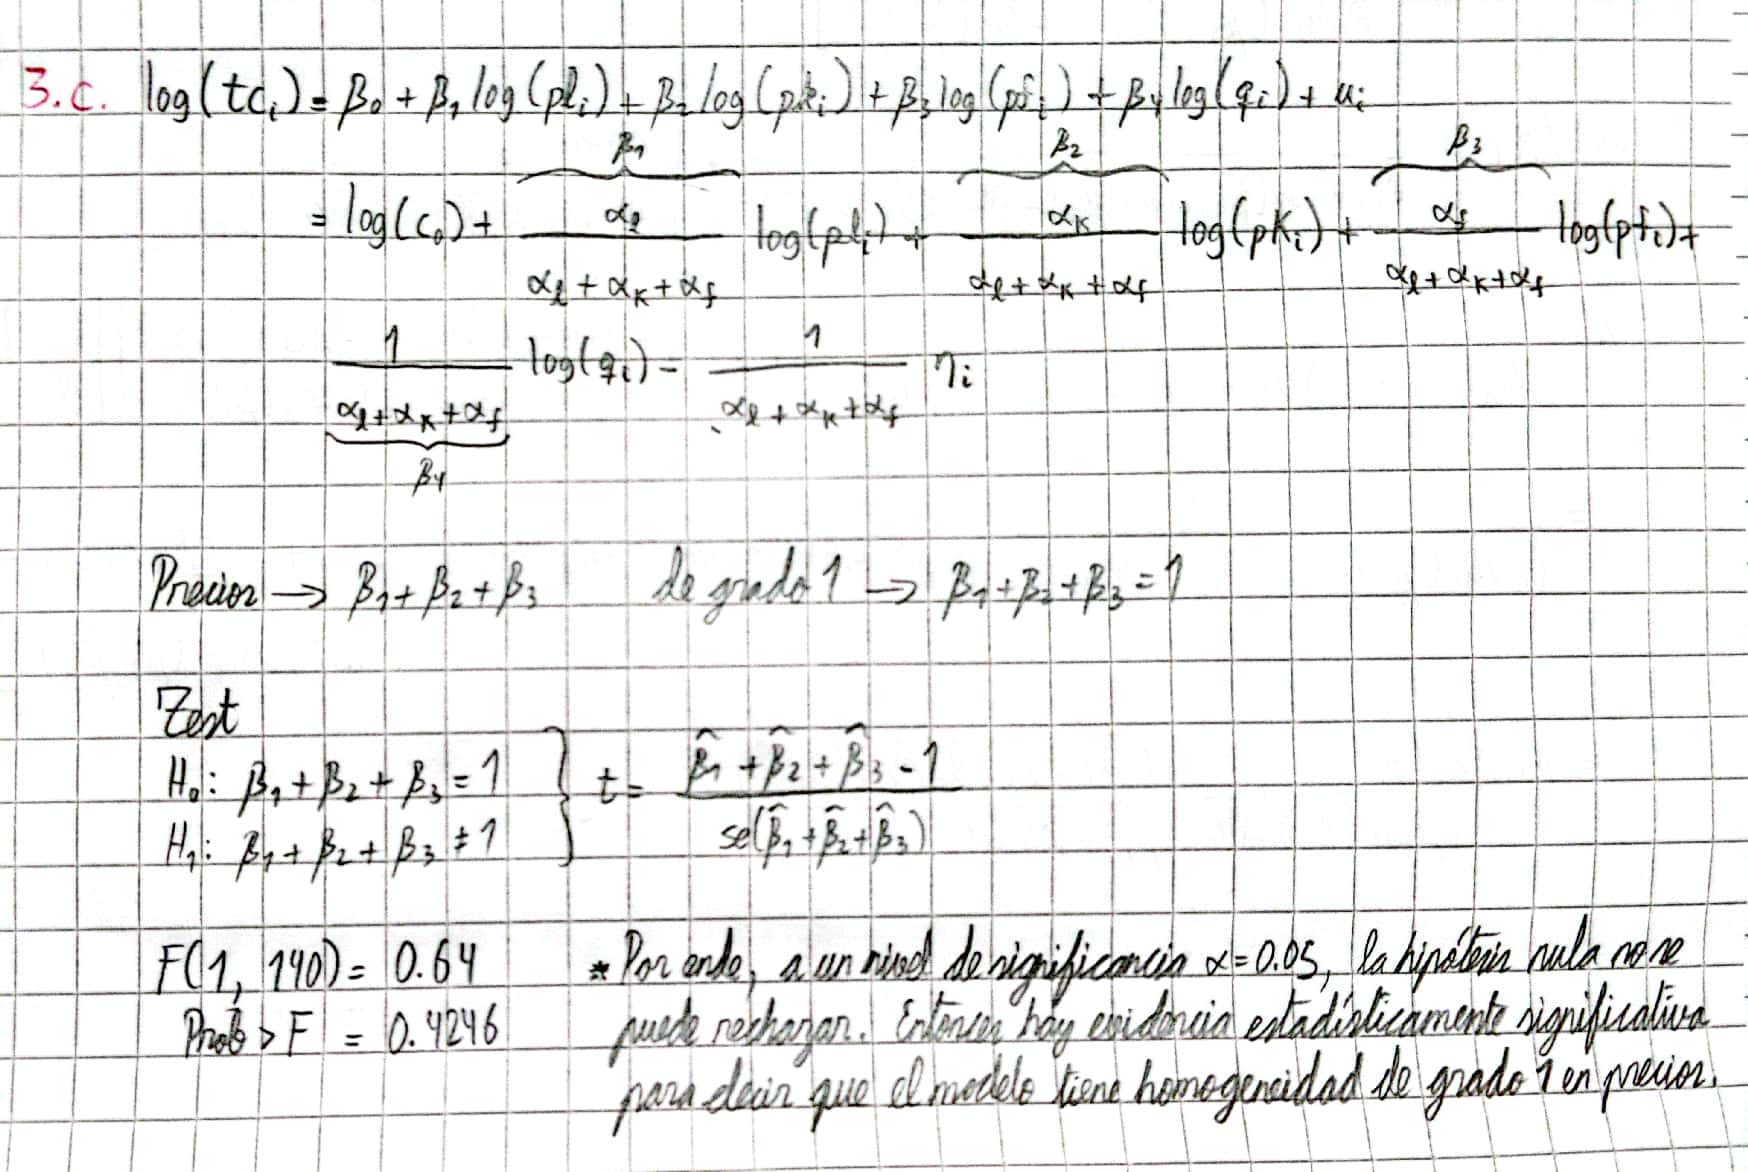 3.c. log(tcᵢ) = β₀ + β₁ log(plᵢ) + β₂ log(pkᵢ) + β₃ log(pfᵢ) + β₄ log(qᵢ) + uᵢ
β₁ β₂ β₃
αₗ αₖ α_f
= log(c₀) + ――― log(plᵢ) + ――― log(pkᵢ) + ――― log(pfᵢ) +
αₗ + αₖ + α_f αₗ + αₖ + α_f αₗ + αₖ + α_f
1 1
――― log(qᵢ) - ――― ηᵢ
αₗ + αₖ + α_f αₗ + αₖ + α_f
β₄
Precios → β₁ + β₂ + β₃ de grado 1 → β₁ + β₂ + β₃ = 1
Test
H₀: β₁ + β₂ + β₃ = 1 } t = (β̂₁ + β̂₂ + β̂₃ - 1) / se(β̂₁ + β̂₂ + β̂₃)
H₁: β₁ + β₂ + β₃ ≠ 1
F(1, 140) = 0.64 * Por ende, a un nivel de significancia α = 0.05, la hipótesis nula no se
Prob > F = 0.4246 puede rechazar. Entonces hay evidencia estadísticamente significativa
para decir que el modelo tiene homogeneidad de grado 1 en precios.